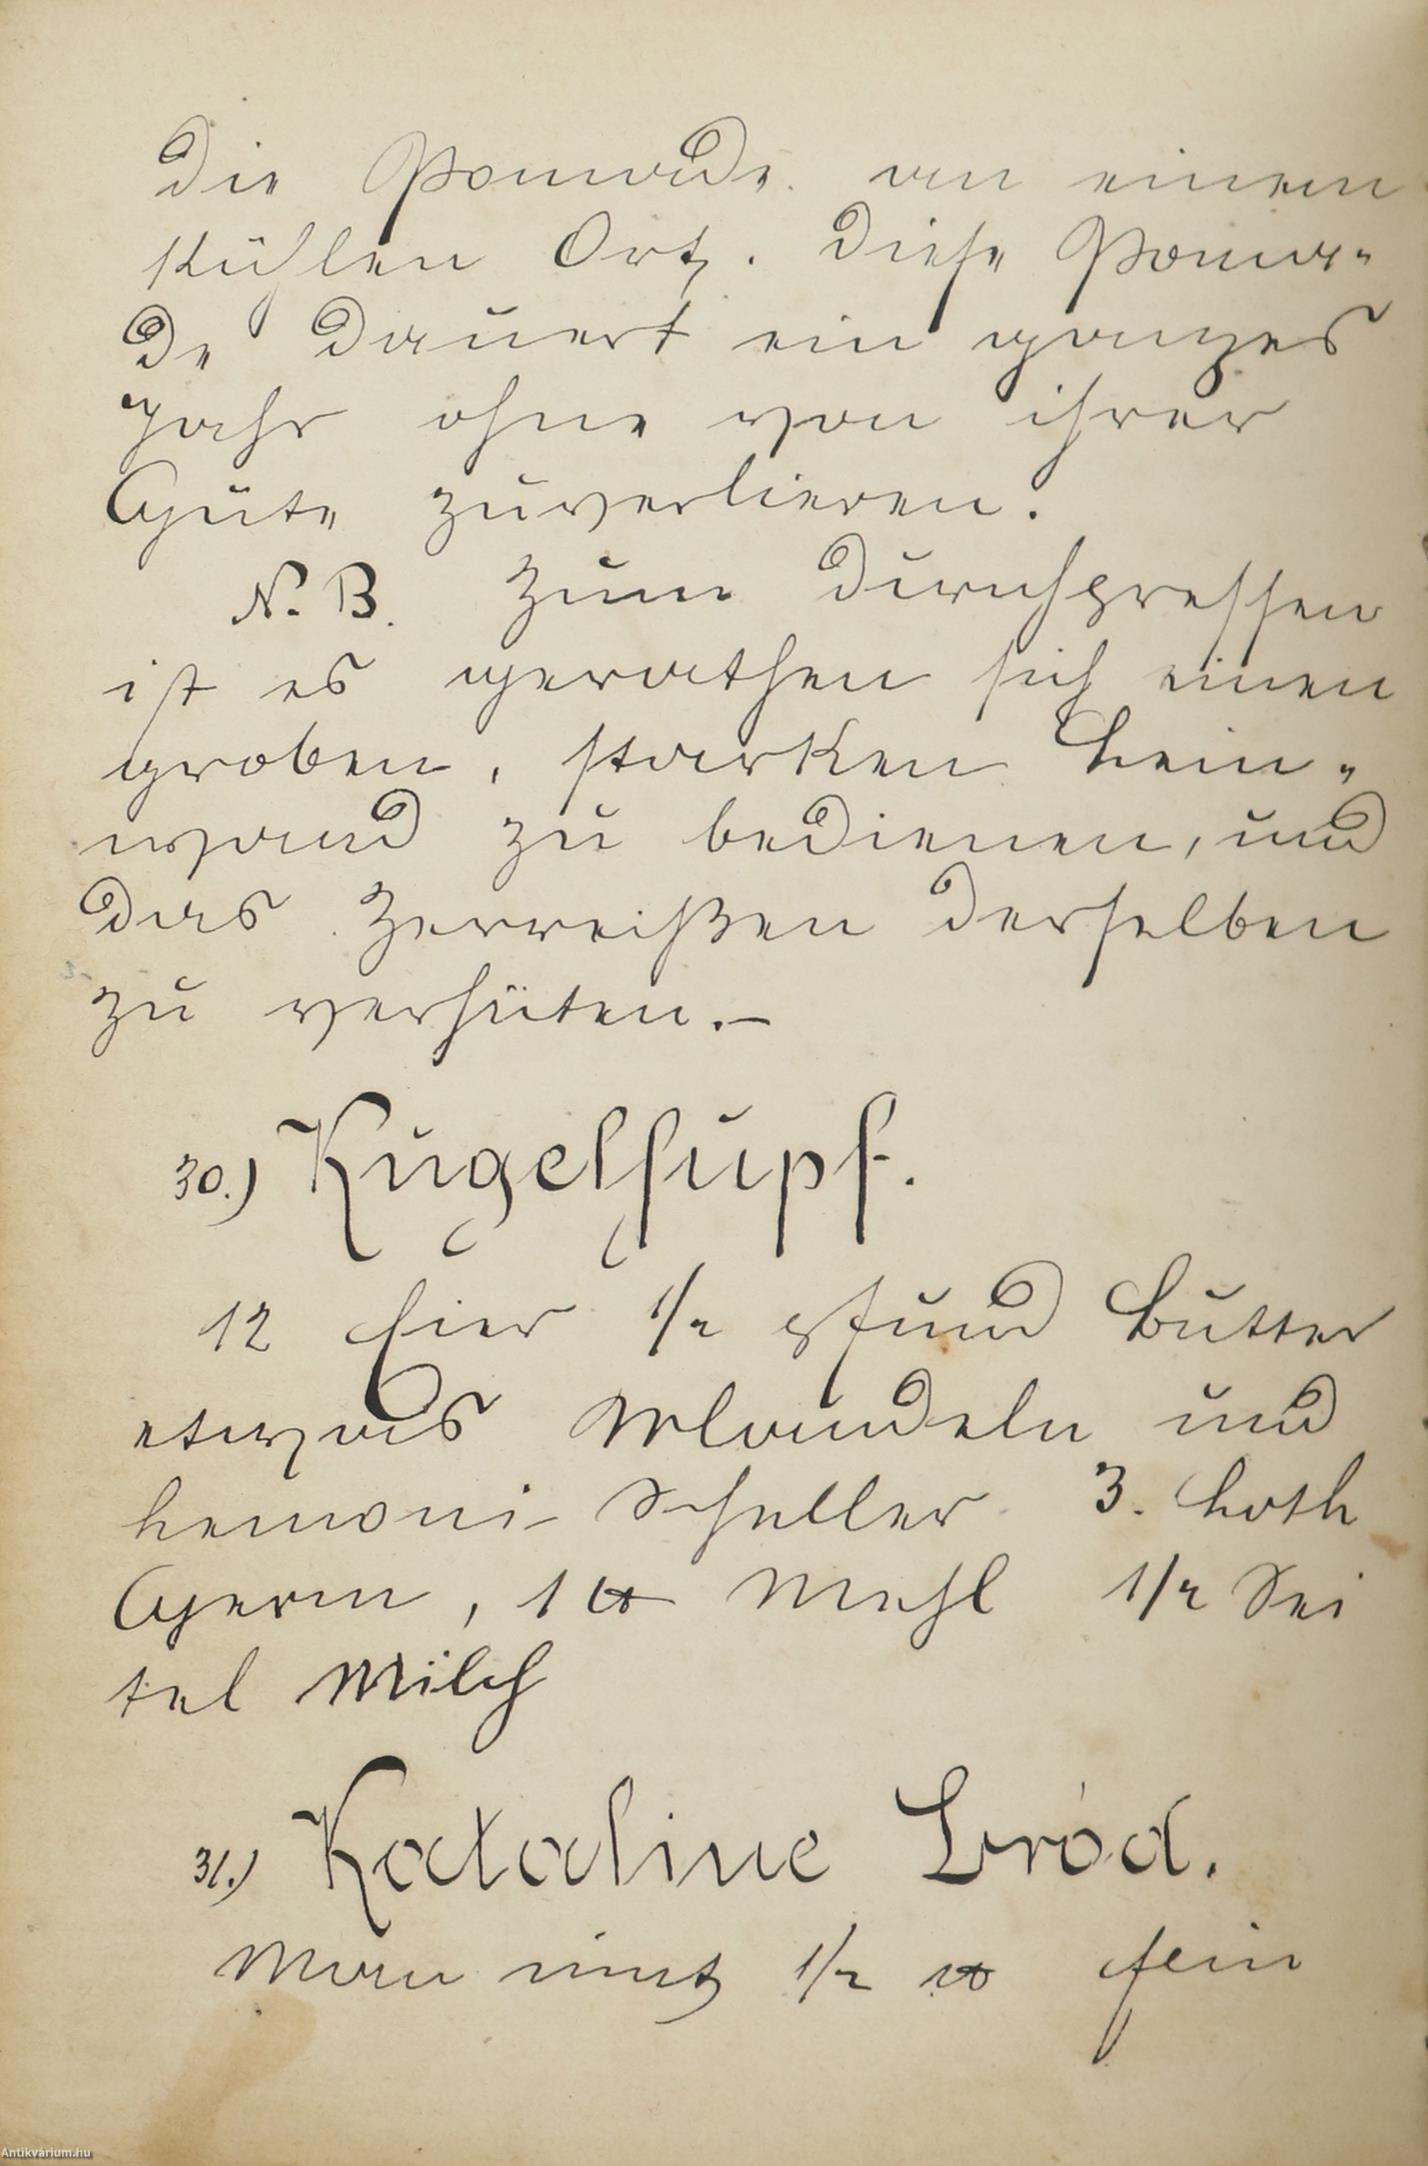 die Pomade an einem
kühlen Ort. Diese Poma-
de dauert ein ganzes
Jahr ohne von ihrer
Güte zuverlieren.
N. B. Zum durchpressen
ist es gerathen sich einen
groben, starken Lein-
wand zu bedienen, und
das Zerreißen derselben
zu verhüten.–
30.) Kugelhupf.
12 Eier 1/2 Pfund Butter
etwas Mandeln und
Lemoni Scheller 3. Loth
Germ, 1 ℔ Mehl 1/2 Sei
tel Milch
31.) Kataline Brod.
Man nimt 1/2 ℔ fein
Antikvárium.hu